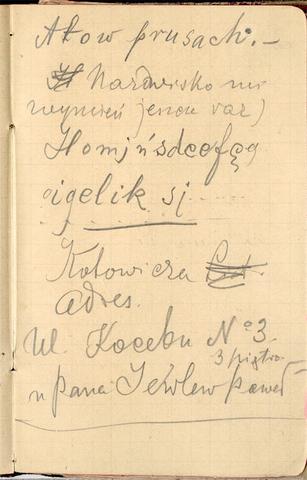 Atow prusach. –
Nazdwisko
wymień jescu raz)
Homjńsdcefęg
igelik sj......
Kotowicza
adres.
Ul. Kocebu № 3.
3 piętro
u pana Jewlew paweł